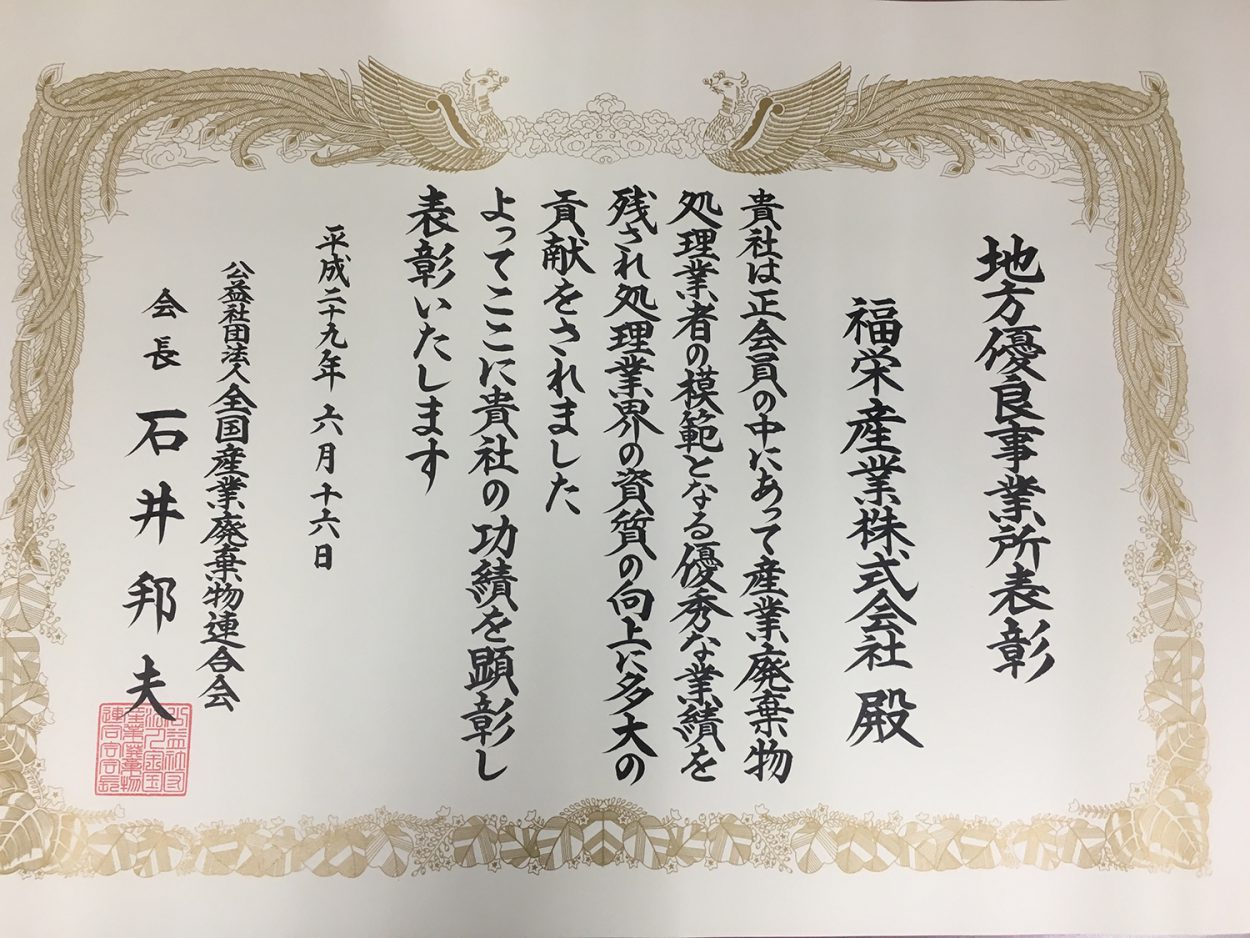 地方優良事業所表彰
福栄産業株式会社 殿
貴社は正会員の中にあって産業廃棄物
処理業者の模範となる優秀な業績を
残され処理業界の資質の向上に多大の
貢献をされました
よってここに貴社の功績を顕彰し
表彰いたします
平成二十九年 六月十六日
公益社団法人全国産業廃棄物連合会
会長 石井邦夫
公益社団
法人全国
産業廃棄物
連合会会長